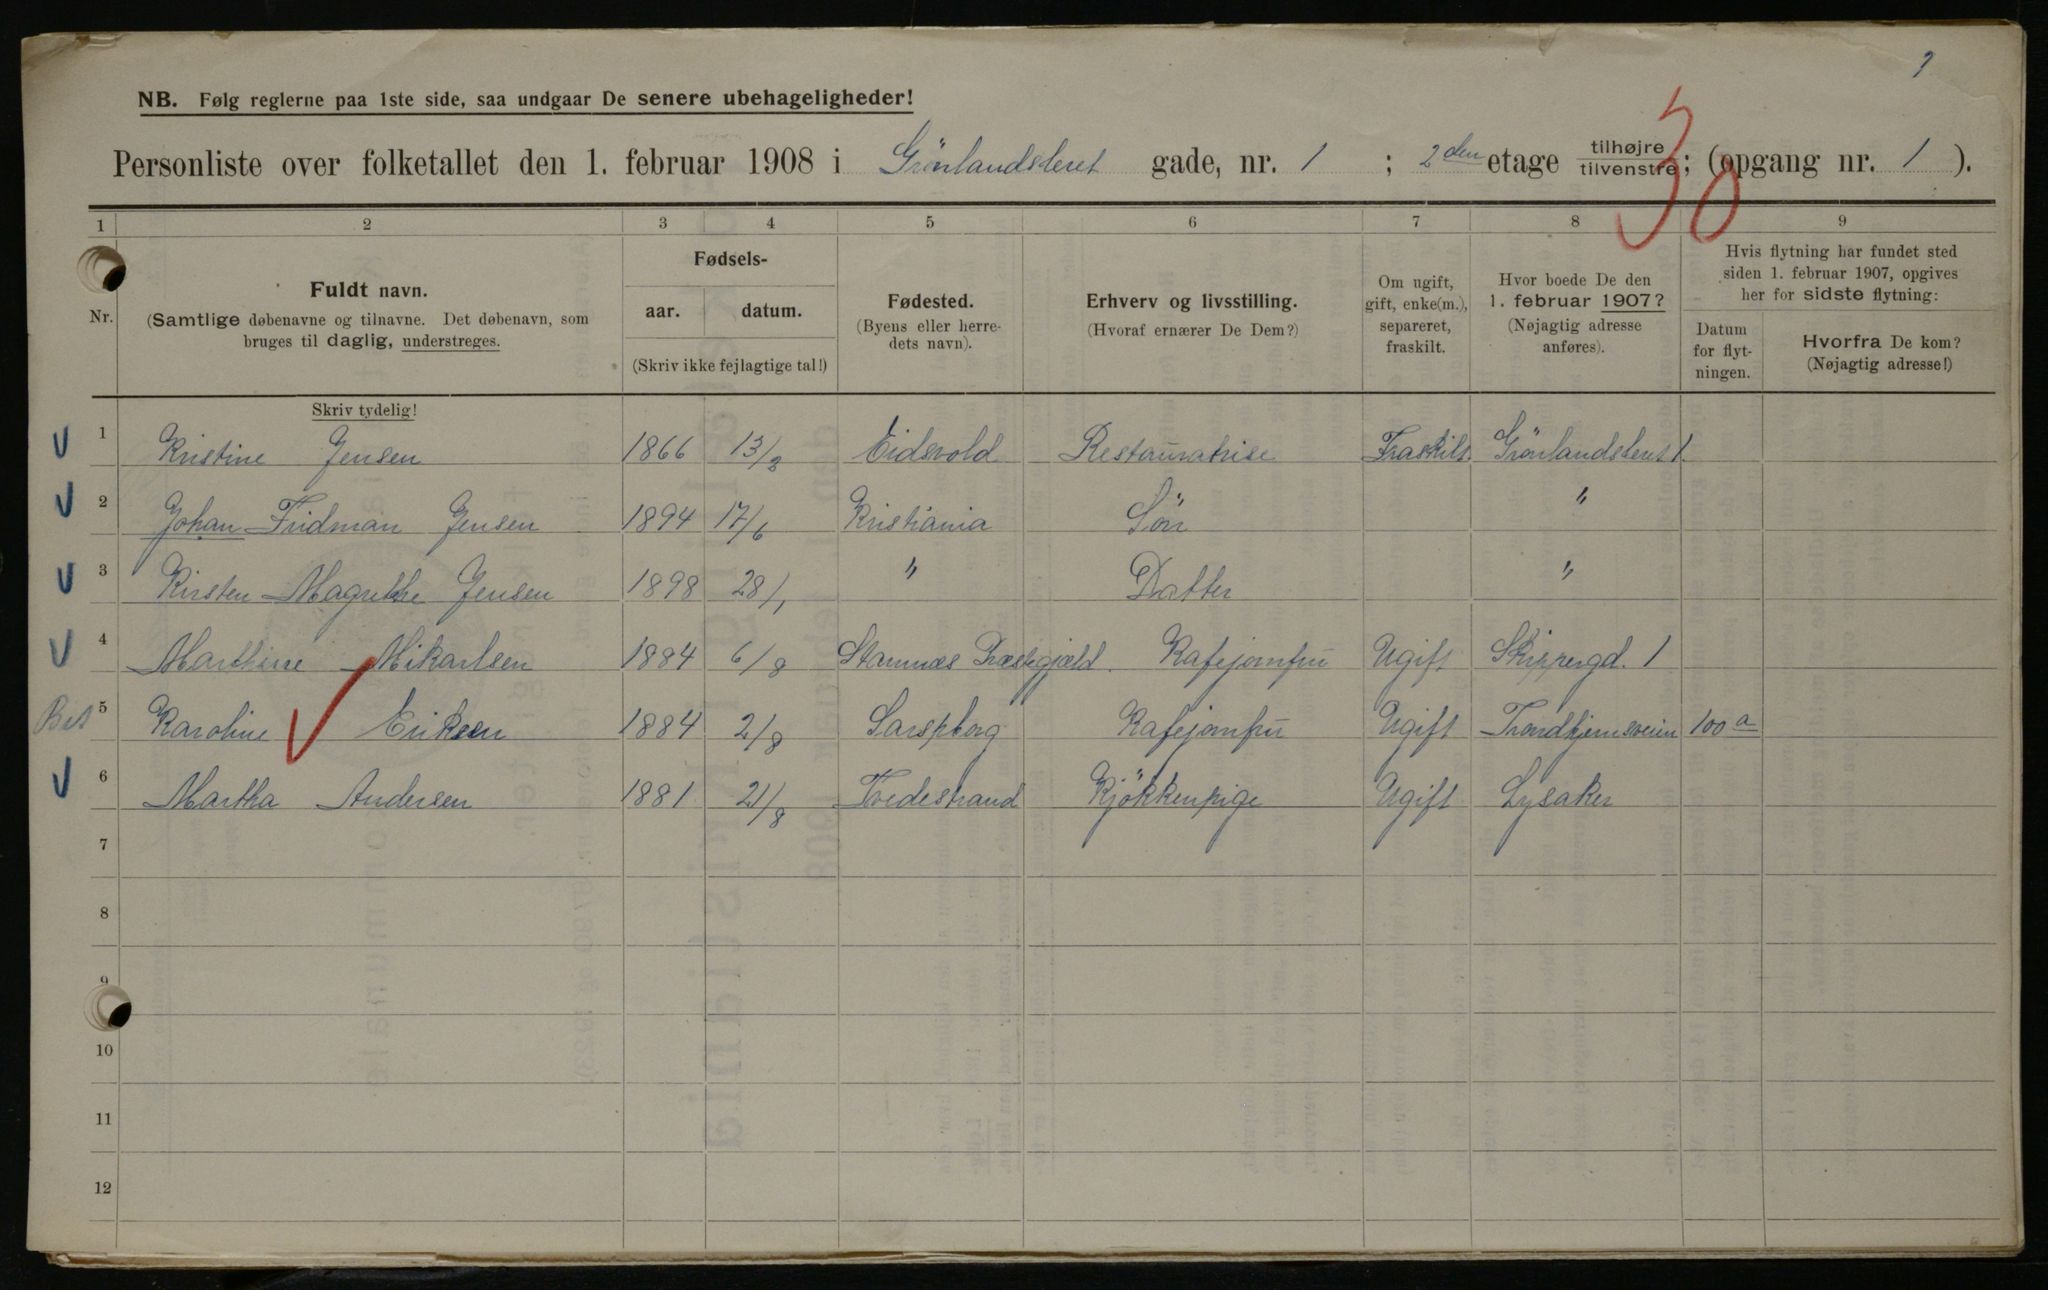 7
NB. Følg reglerne paa 1ste side, saa undgaar De senere ubehageligheder!
Personliste over folketallet den 1. februar 1908 i Grönlandsleret gade, nr. 1 ; 2den etage tilhøjre / tilvenstre; (opgang nr. 1 ).
30
1 2 3 4 5 6 7 8 9
Nr.
Fuldt navn.
(Samtlige døbenavne og tilnavne. Det døbenavn, som
bruges til daglig, understreges.
Fødsels-
aar. datum.
(Skriv ikke fejlagtige tal!)
Fødested.
(Byens eller herre-
dets navn).
Erhverv og livsstilling.
(Hvoraf ernærer De Dem?)
Om ugift,
gift, enke(m.),
separeret,
fraskilt.
Hvor boede De den
1. februar 1907?
(Nøjagtig adresse
anføres).
Hvis flytning har fundet sted
siden 1. februar 1907, opgives
her for sidste flytning:
Datum
for flyt-
ningen.
Hvorfra De kom?
(Nøjagtig adresse!)
Skriv tydelig!
1 Kristine Jensen 1866 13/8 Eidsvold Restauratrise Fraskilt Grönlandsleret 1.
2 Johan Fridman Jensen 1894 17/6 Kristiania Sön "
3 Kirsten Magrethe Jensen 1898 28/1 " Datter "
4 Marthine Mikarlsen 1884 6/8 Stamnæs Præstegjæld. Kafejomfru Ugift Skippergd. 1
Bet 5 Karoline Eriksen 1884 2/8 Sarspborg Kafejomfru Ugift Trondhjemsveien 100 a
6 Martha Andersen 1881 21/8 Tvedestrand Kjökkenpige Ugift Lysaker
7
8
9
10
11
12